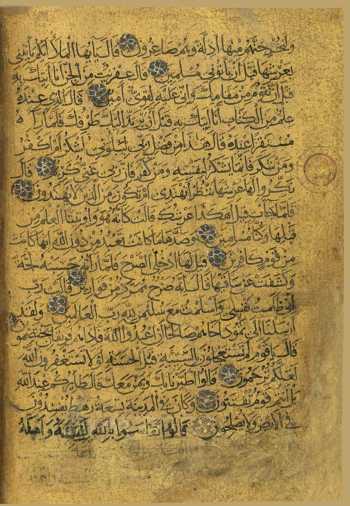 ولنخرجنهم منها أذلة وهم صاغرون قال يا أيها الملأ أيكم يأتيني
بعرشها قبل أن يأتوني مسلمين قال عفريت من الجن أنا آتيك به
قبل أن تقوم من مقامك وإني عليه لقوي أمين قال الذي عنده
علم من الكتاب أنا آتيك به قبل أن يرتد إليك طرفك فلما رآه
مستقرا عنده قال هذا من فضل ربي ليبلوني أأشكر أم أكفر
ومن شكر فإنما يشكر لنفسه ومن كفر فإن ربي غني كريم قال
نكروا لها عرشها ننظر أتهتدي أم تكون من الذين لا يهتدون
فلما جاءت قيل أهكذا عرشك قالت كأنه هو وأوتينا العلم من
قبلها وكنا مسلمين وصدها ما كانت تعبد من دون الله إنها كانت
من قوم كافرين قيل لها ادخلي الصرح فلما رأته حسبته لجة
وكشفت عن ساقيها قال إنه صرح ممرد من قوارير قالت رب
إني ظلمت نفسي وأسلمت مع سليمن لله رب العالمين ولقد
أرسلنا إلى ثمود أخاهم صالحا أن اعبدوا الله فإذا هم فريقان يختصمون
قال يا قوم لم تستعجلون بالسيئة قبل الحسنة لولا تستغفرون الله
لعلكم ترحمون قالوا اطيرنا بك وبمن معك قال طائركم عند الله
بل أنتم قوم تفتنون وكان في المدينة تسعة رهط يفسدون
في الأرض ولا يصلحون قالوا تقاسموا بالله لنبيتنه وأهله